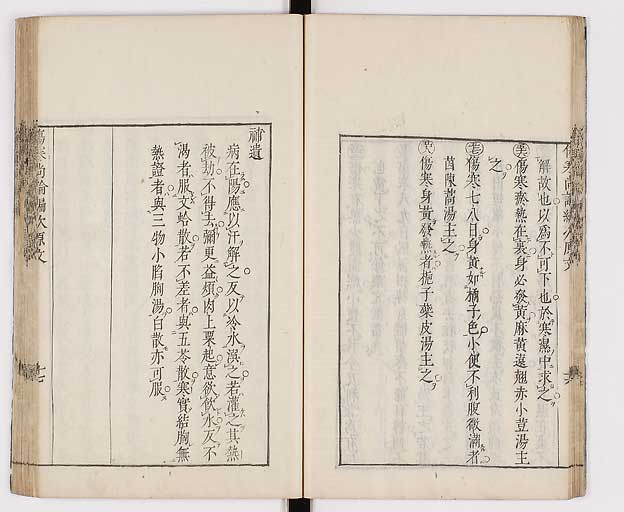 解故也以爲不可下也於寒濕中求之
傷寒瘀熱在裏身必發黃麻黃連翹赤小荳湯主
之
傷寒七八日身黃如橘子色小便不利腹微滿者
茵陳蒿湯主之
傷寒身黃發熱者梔子蘗皮湯主之
補遺
病在陽應以汗解之反以冷水潠之若灌之其熱
被劫不得去彌更益煩肉上粟起意欲飲水反不
渴者服文蛤散若不差者與五苓散寒實結胸無
熱證者與三物小陷胸湯白散亦可服